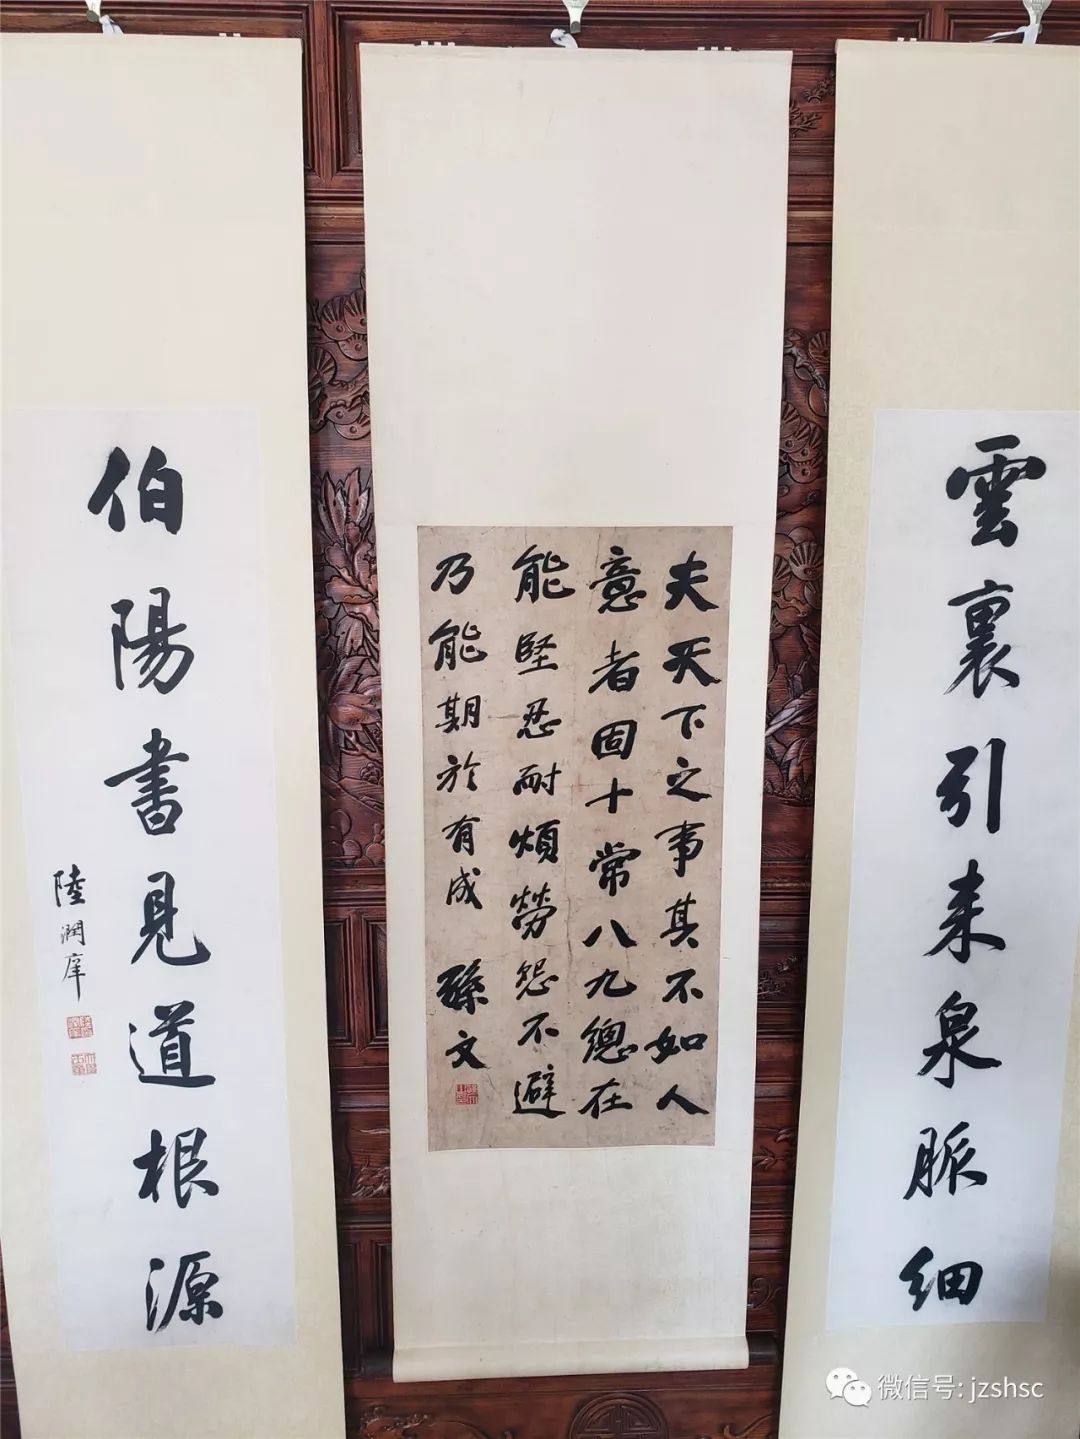 雲裏引来泉脈細
夫天下之事其不如人
意者固十常八九總在
能堅忍耐煩勞怨不避
乃能期於有成
孫文
伯陽書見道根源
陸潤庠
微信号: jzshsc